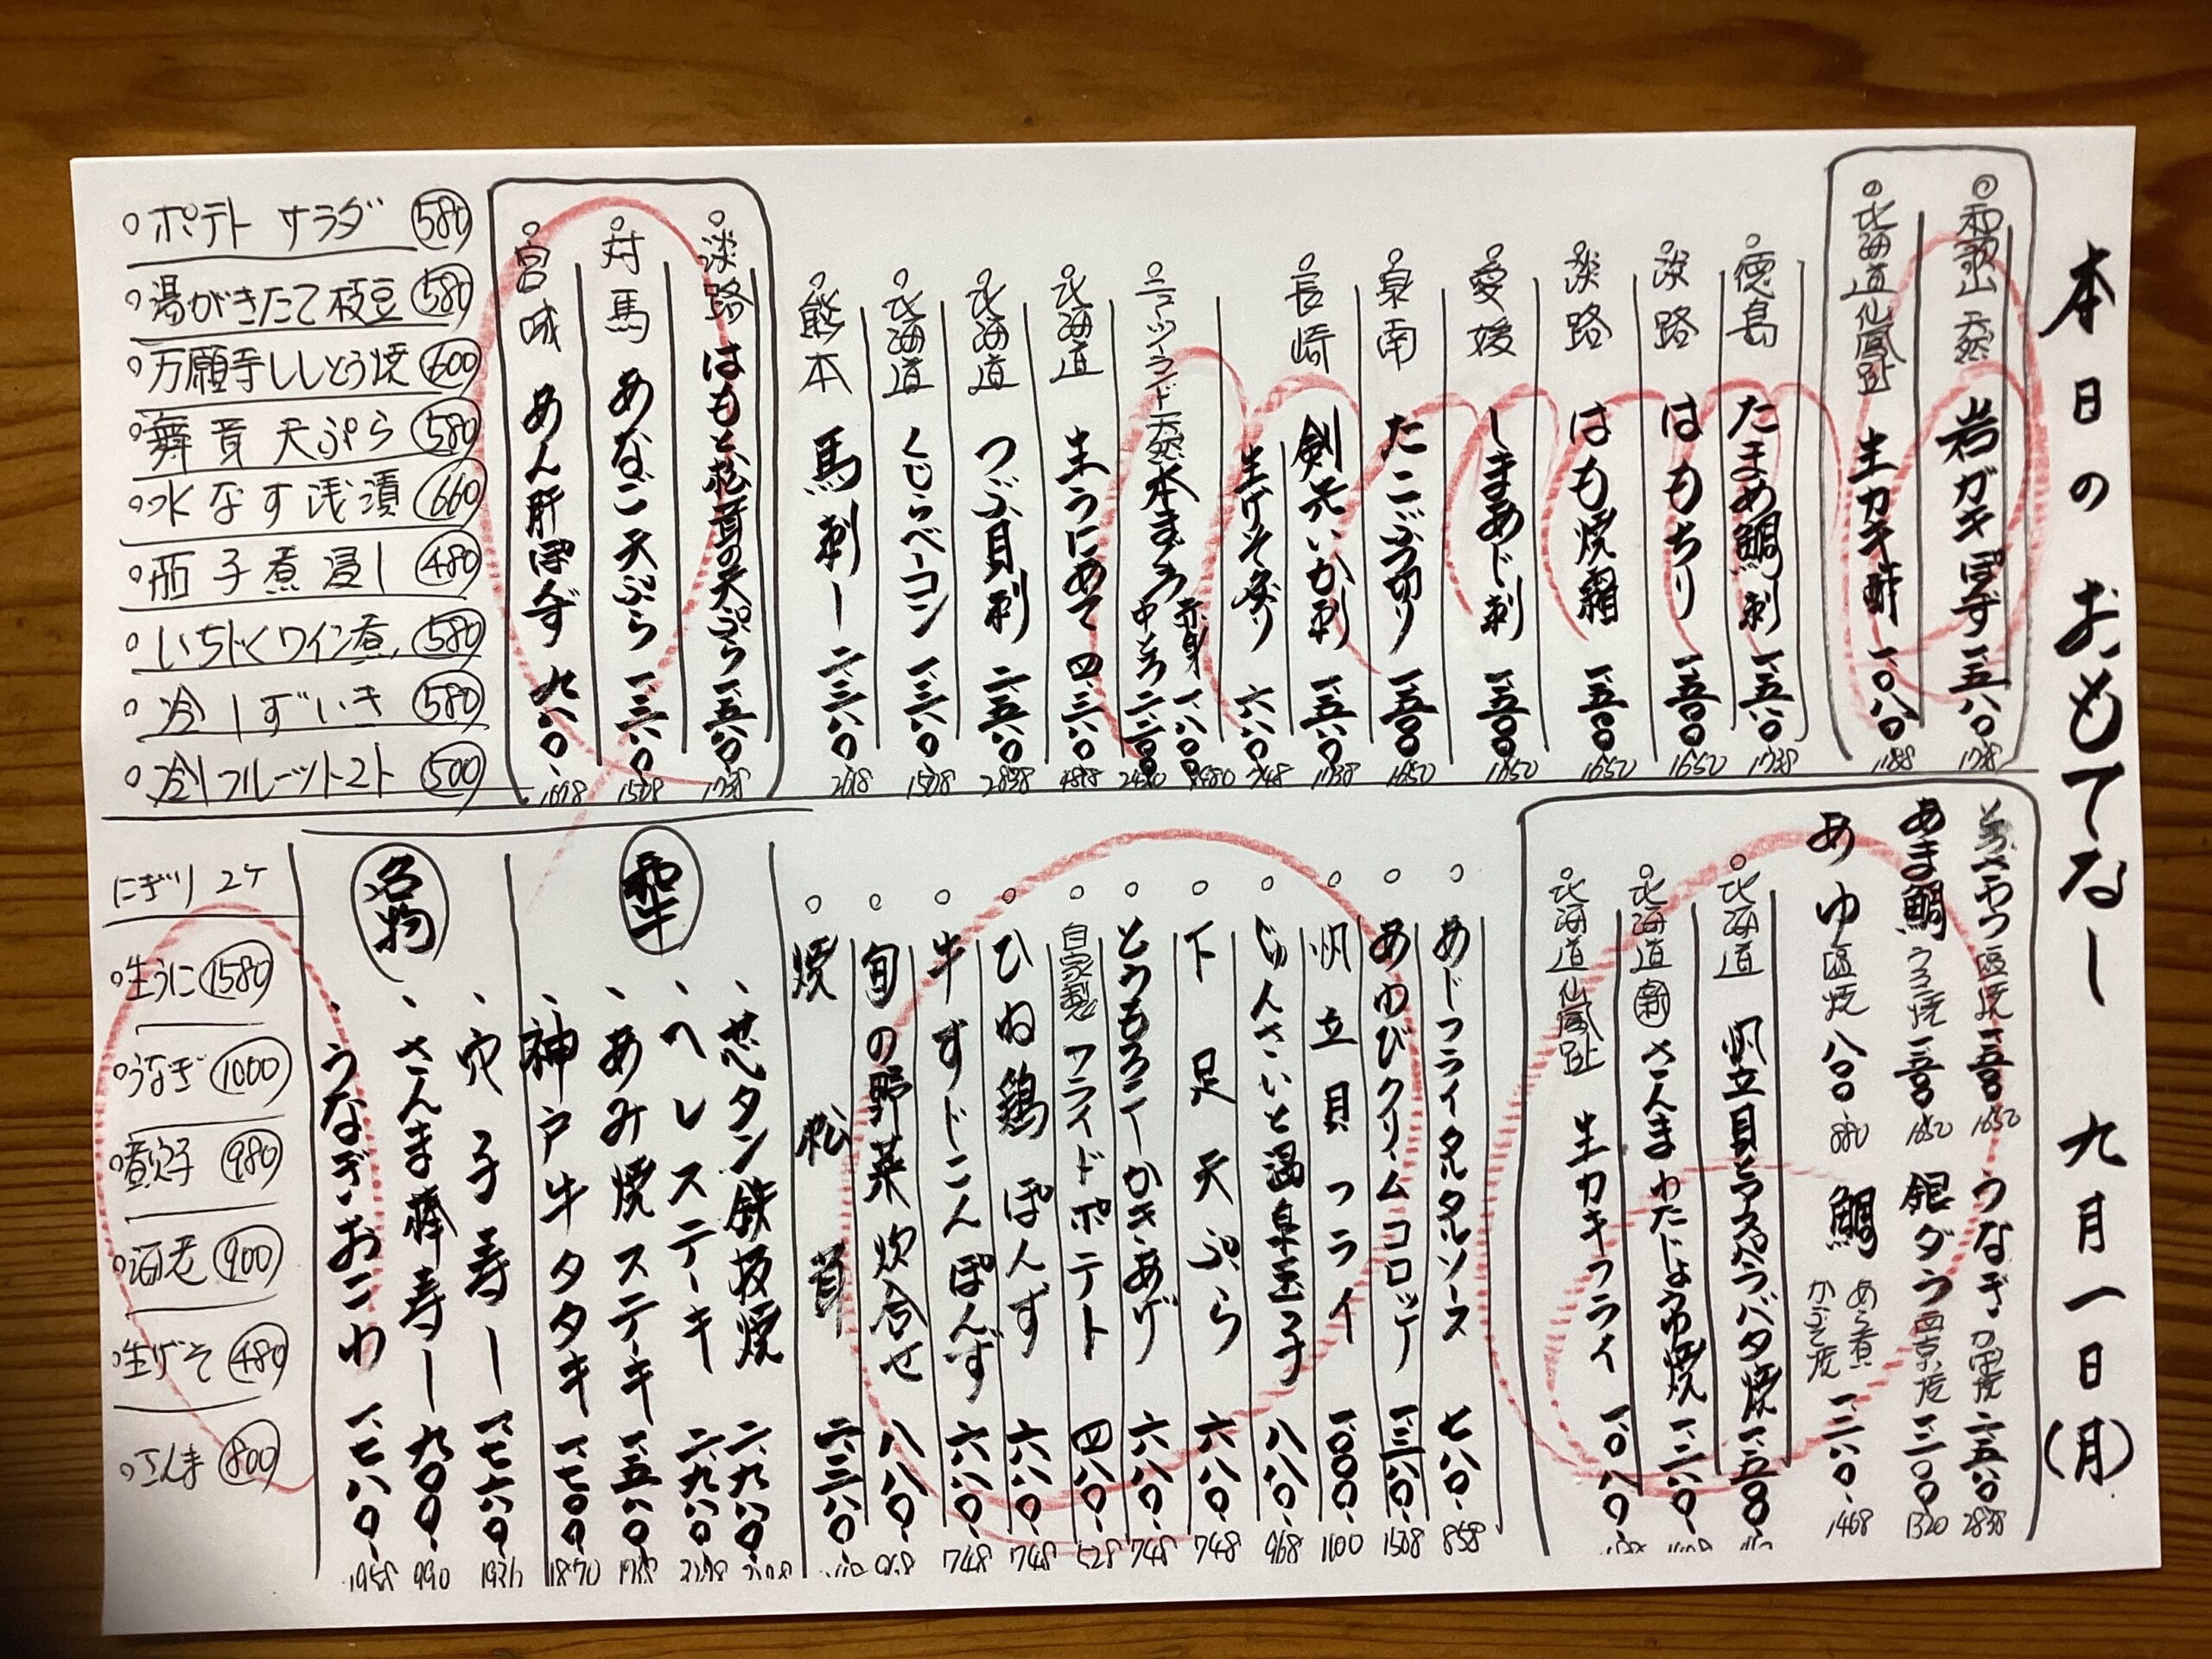 本日のおもてなし 九月一日(月)
◎和歌山 天然 岩ガキぽんず 一、五八〇 1738
◎北海道仙鳳趾 生カキ酢 一、〇八〇 1188
○徳島 たまめ鯛刺 一、五八〇 1738
○淡路 はもちり 一、五〇〇 1650
○淡路 はも焼霜 一、五〇〇 1650
○愛媛 しまあじ刺 一、五〇〇 1650
○泉南 たこぶつ切り 一、五〇〇 1650
○長崎 剣先いか刺 一、五八〇 1738
生げそ炙り 六八〇 748
○ニュージーランド天然 本まぐろ 赤身 一、八〇〇 1980
中とろ 二、二〇〇 2420
○北海道 生うにあて 四、三八〇 4818
○北海道 つぶ貝刺 二、五八〇 2838
○北海道 くじらベーコン 一、三八〇 1508
○熊本 馬刺し 二、三八〇 2618
○淡路 はもと松茸の天ぷら 一、五八〇 1738
○対馬 あなご天ぷら 一、三八〇 1508
○宮城 あん肝ぽんず 九八〇 1078
○ポテトサラダ 580
○湯がきたて枝豆 580
○万願寺ししとう焼 600
○舞茸天ぷら 580
○水なす浅漬 660
○茄子煮浸し 480
○いちじくワイン煮 580
○冷しずいき 580
○冷しフルーツトマト 500
さわら 塩焼 一、五〇〇 1650
うなぎ 二、五八〇 2838
あま鯛 うろこ焼 一、五〇〇 1650
銀ダラ 西京焼 一、二〇〇 1320
あゆ 塩焼 八〇〇 880
鯛 あら煮 かぶと焼 一、二八〇 1408
○北海道 帆立貝とアスパラバタ焼
○北海道 新 さんまわたじょうゆ焼 一、二八〇
○北海道仙鳳趾 生カキフライ 一、〇八〇
○あじフライタルタルソース 七八〇 858
○あわびクリームコロッケ 一、三八〇 1508
○帆立貝フライ 一、〇〇〇 1100
○じゅんさいと温泉玉子 八八〇 968
○下足天ぷら 六八〇 748
○とうもろこしかきあげ 六八〇 748
○自家製フライドポテト 四八〇 528
○ひね鶏ぽんず 六八〇 748
○牛すじこんぽんず 六八〇 748
○旬の野菜炊合せ 八八〇 968
○焼松茸 二、三八〇
和牛
、タン鉄板焼 二、九八〇
、ヘレステーキ 二、九八〇
、あみ焼ステーキ 一、五八〇 1738
、神戸牛タタキ 一、七〇〇 1870
名物
、穴子寿し 一、七六〇 1936
、さんま棒寿し 九〇〇 990
、うなぎおこわ 一、七八〇 1958
にぎり 2ケ
○生うに 1580
○うなぎ 1000
○煮穴子 980
○海老 900
○生げそ 480
○さんま 800